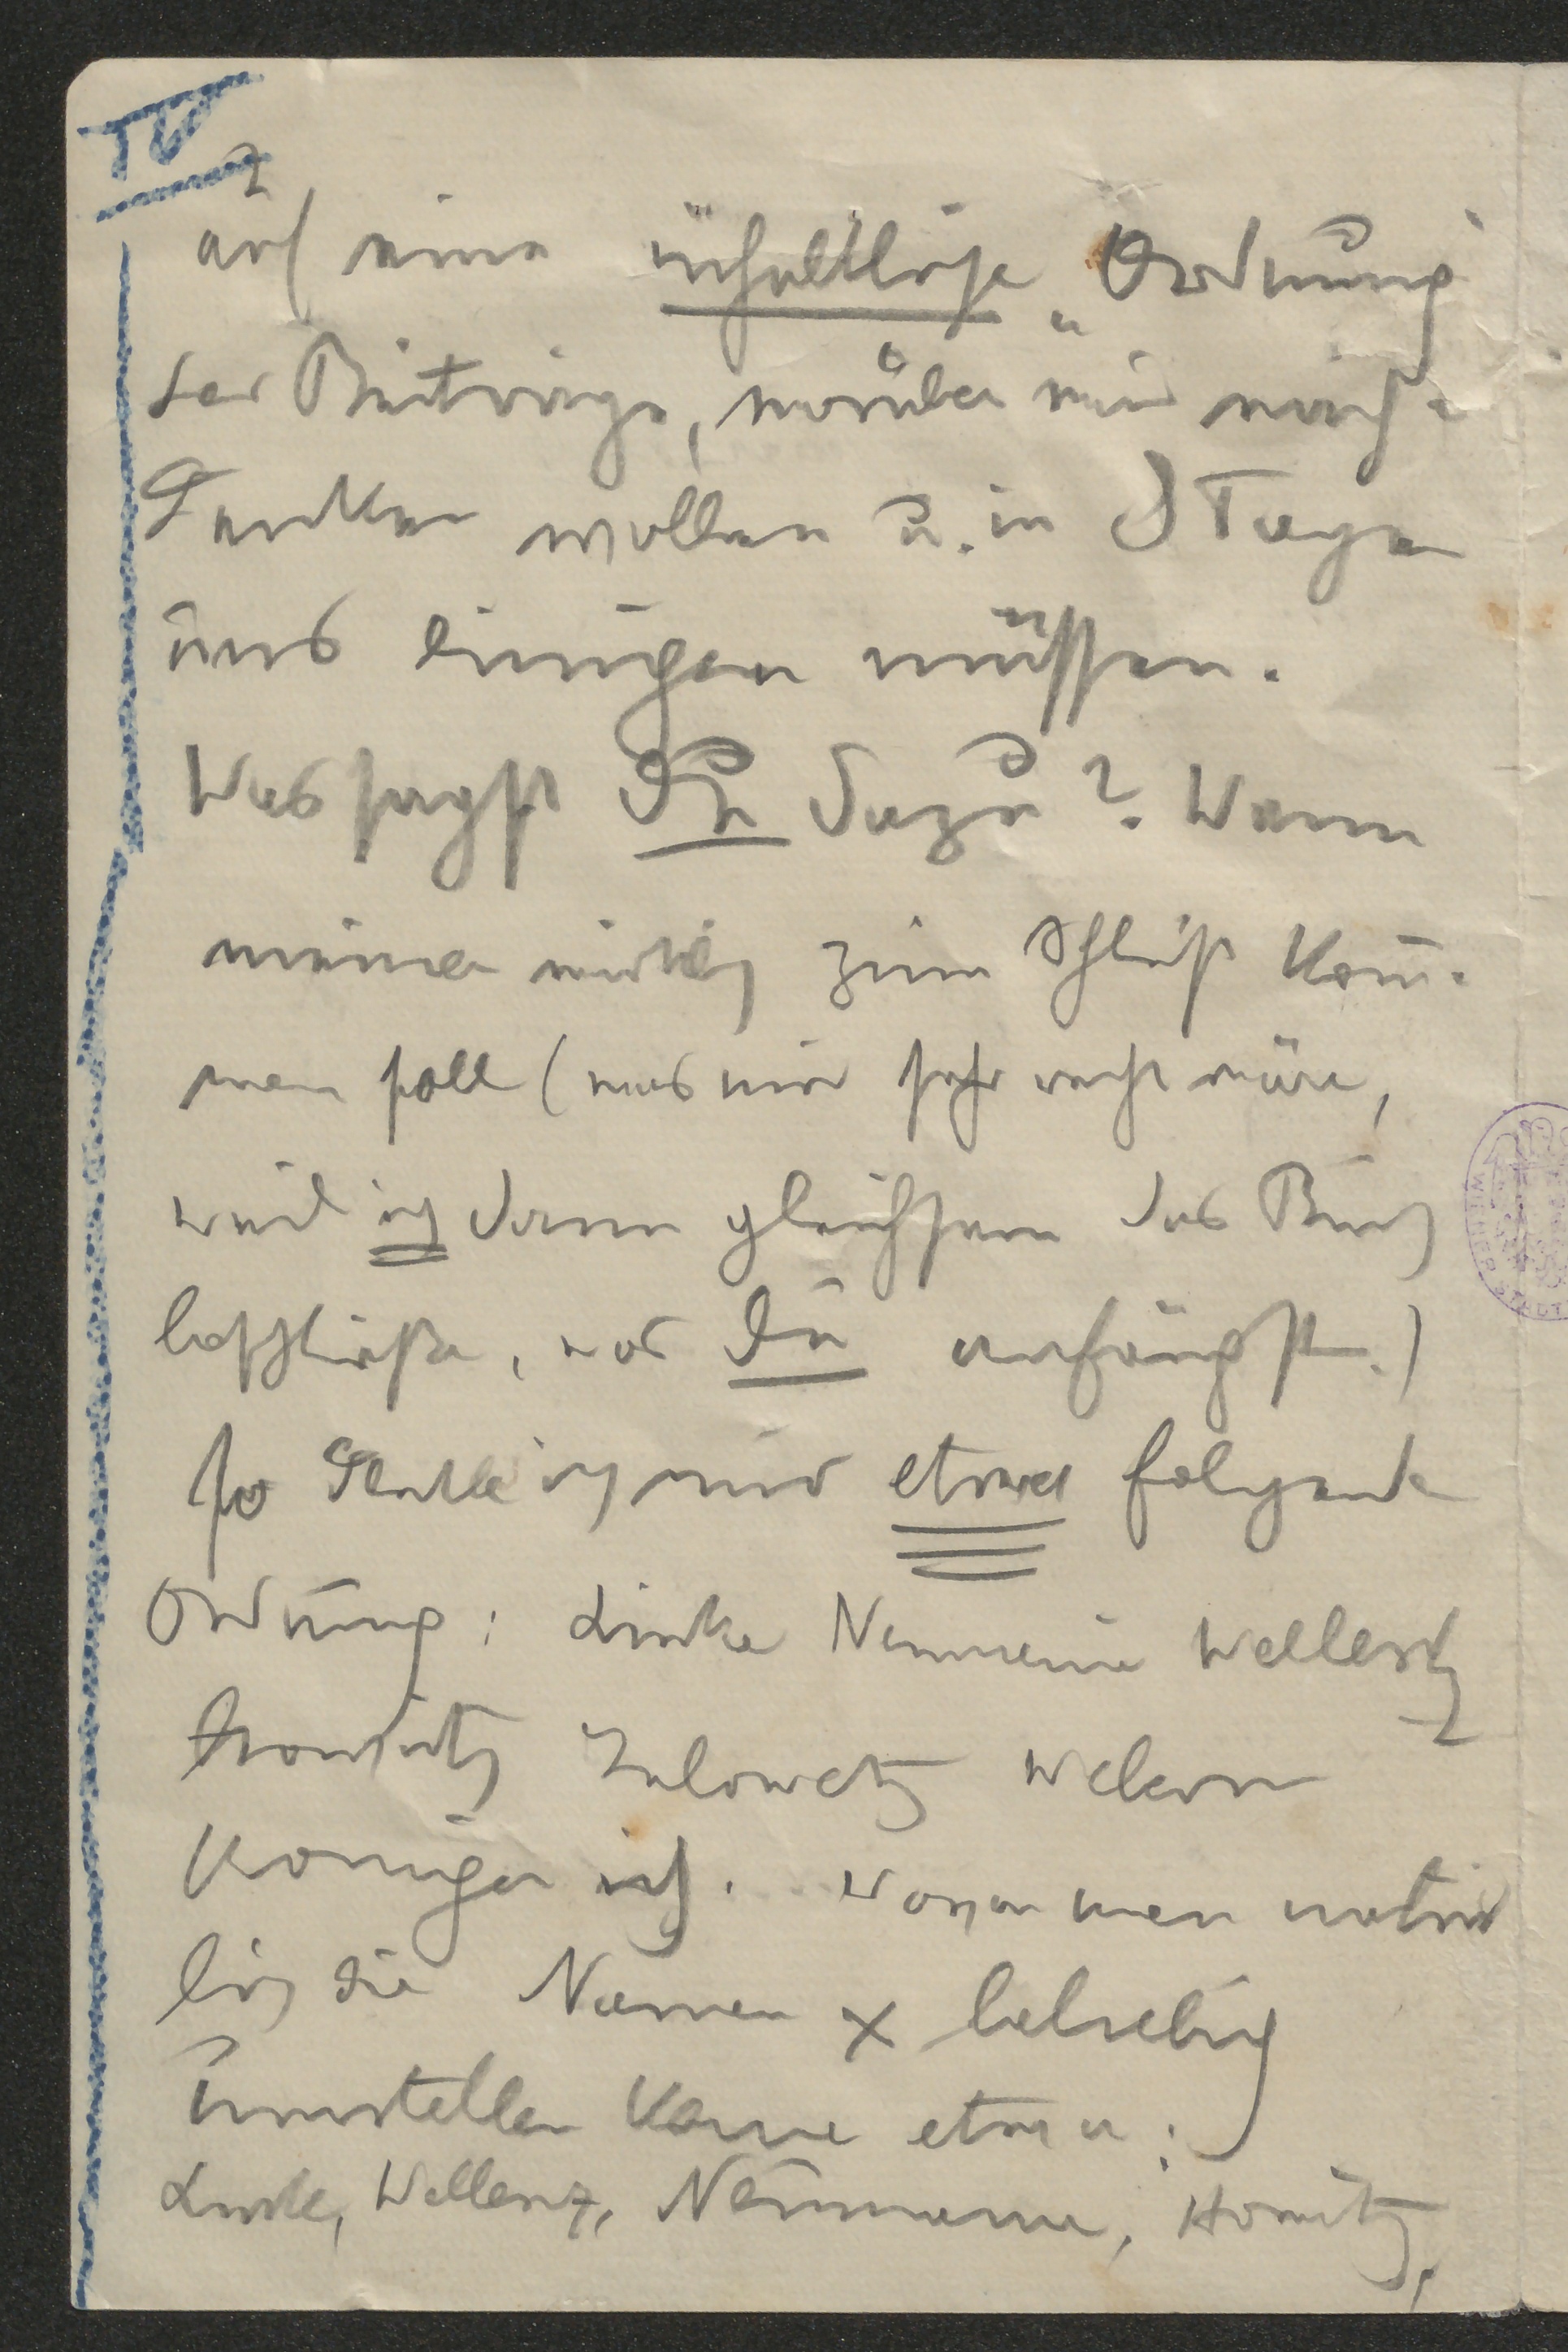 IV
auf eine inhaltliche „Ordnung"
der Beiträge, worüber wir nach-
denken wollen u. in 8 Tagen
uns einigen müssen.
Was sagst Du dazu? Wenn
meiner wirklich zum Schluß kom̄-
men soll (was mir sehr recht wäre,
weil ich dann gleichsam das Buch
beschließe, das Du anfängst.)
so denke ich mir etwa folgende
Ordnung: Linke Neumann Wellesz
Horwitz Jalowetz Webern
Königer ich. Woran man natür
lich die Namen x beliebig
umstellen kann etwa:
Linke, Wellesz, Neumann, Horwitz,
WIENER STADT